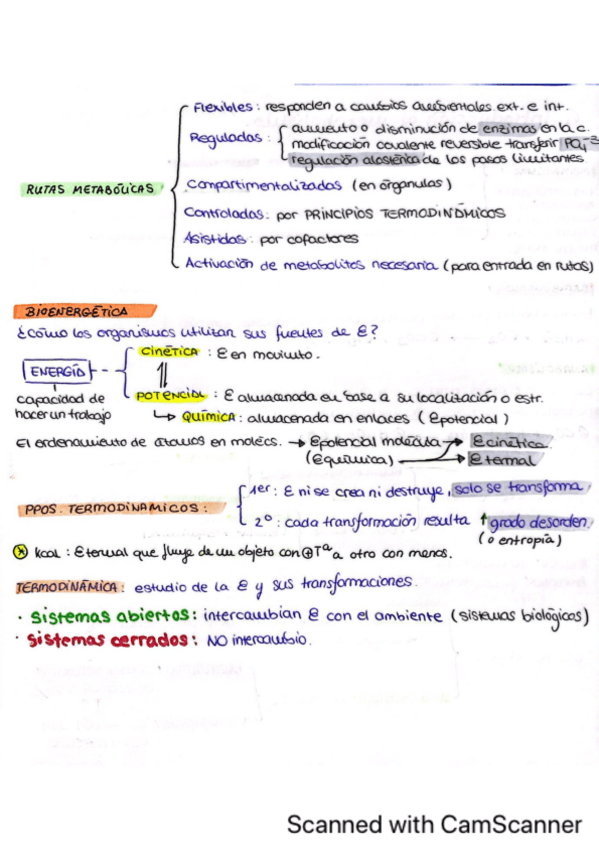 Flexibles: responden a cambios ambientales ext. e int.
Reguladas: aumento o disminución de enzimas en la c.
modificación covalente reversible transferir PO4-3
regulación alostérica de los pasos limitantes
RUTAS METABÓLICAS
Compartimentalizadas (en órganulas)
Controladas: por PRINCIPIOS TERMODINÁMICOS
Asistidas: por cofactores
Activación de metabolitos necesaria (para entrada en rutas)
BIOENERGÉTICA
¿cómo los organismos utilizan sus fuentes de E?
CINÉTICA: E en movimto.
ENERGÍA
⇅
POTENCIAL: E almacenada en base a su localización o estr.
capacidad de
hacer un trabajo
↳ QUÍMICA: almacenada en enlaces (Epotencial)
El ordenamiento de átomos en molécs. → Epotencial molécula → E cinética
(Equímica) → E termal
PPOS. TERMODINÁMICOS:
1er: E ni se crea ni destruye, solo se transforma
2º: cada transformación resulta ↑ grado desorden
(o entropía)
* kcal: E termal que fluye de un objeto con ⊕Tª a otro con menos.
TERMODINÁMICA: estudio de la E y sus transformaciones.
· Sistemas abiertos: intercambian E con el ambiente (sistemas biológicos)
· Sistemas cerrados: NO intercambio.
Scanned with CamScanner